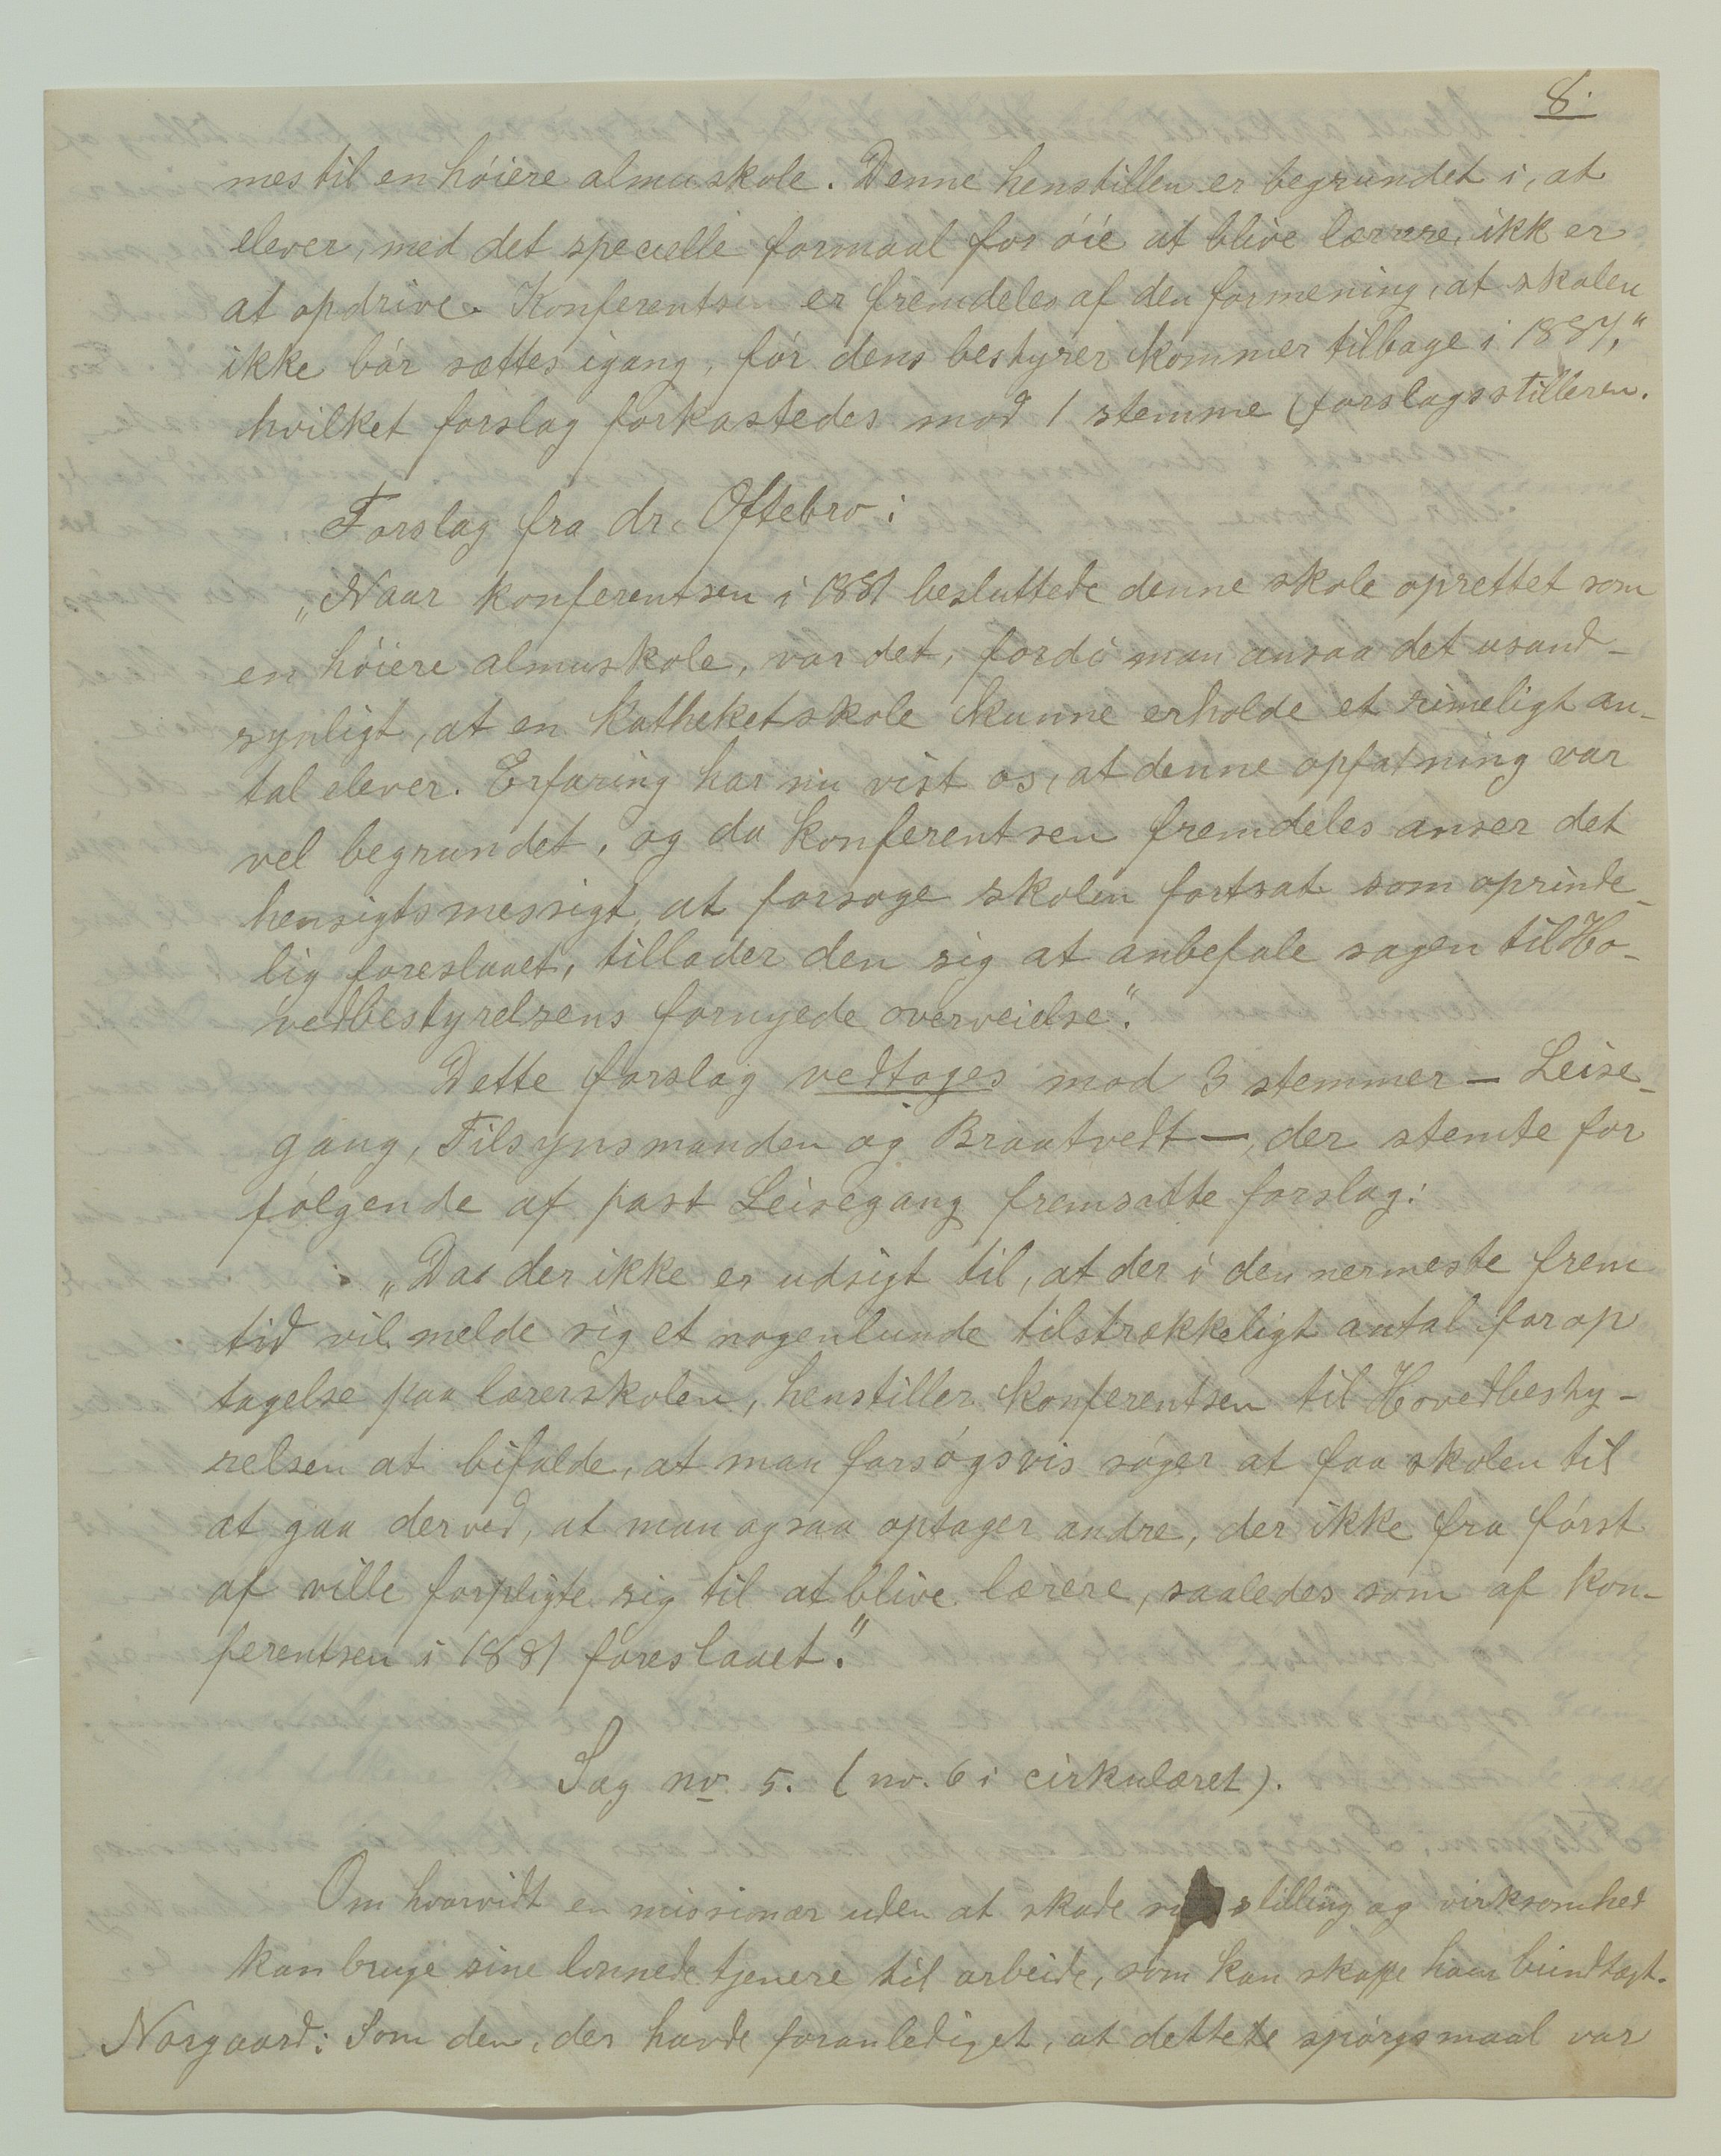 8.
mes til en høiere almuskole. Denne henstillen er begrundet i, at
elever, med det specielle formaal for øie at blive lærere, ikk er
at opdrive. Konferentsen er fremdeles af den formening, at skolen
ikke bør sættes igang, før dens bestyrer kommer tilbage i 1887,"
hvilket forslag forkastedes mod 1 stemme (forslagsstilleren.
Forslag fra dr. Oftebro:
"Naar konferentsen i 1881 besluttede denne skole oprettet som
en høiere almuskole, var det, fordi man ansaa det usand-
synligt, at en katheketskole kunne erholde et rimeligt an-
tal elever. Erfaring har nu vist os, at denne opfatning var
vel begrundet, og da konferentsen fremdeles anser det
hensigtsmessigt, at forsøge skolen fortsat som oprinde-
lig foreslaaet, tillader den sig at anbefale sagen til Ho-
vedbestyrelsens fornyede overveielse".
Dette forslag vedtoges mod 3 stemmer – Leise-
gang, Tilsynsmanden og Braatvedt –, der stemte for
følgende af past Leisegang fremsatte forslag:
"Da der ikke er udsigt til, at der i den nermeste frem
tid vil melde sig et nogenlunde tilstrækkeligt antal for op
tagelse paa lærerskolen, henstiller konferentsen til Hovedbesty-
relsen at bifalde, at man forsøgsvis søger at faa skolen til
at gaa derved, at man ogsaa optager andre, der ikke fra først
af ville forpligte sig til at blive lærere, saaledes som af kon-
ferentsen i 1881 foreslaaet."
Sag no. 5. (no. 6 i cirkulæret).
Om hvorvidt en missionær uden at skade stilling og virksomhed
kan bruge sine lønnede tjenere til arbeide, som kan skaffe ham indtægt.
Norgaard: Som den, der havde foranlediget, at dettete spørgsmaal var